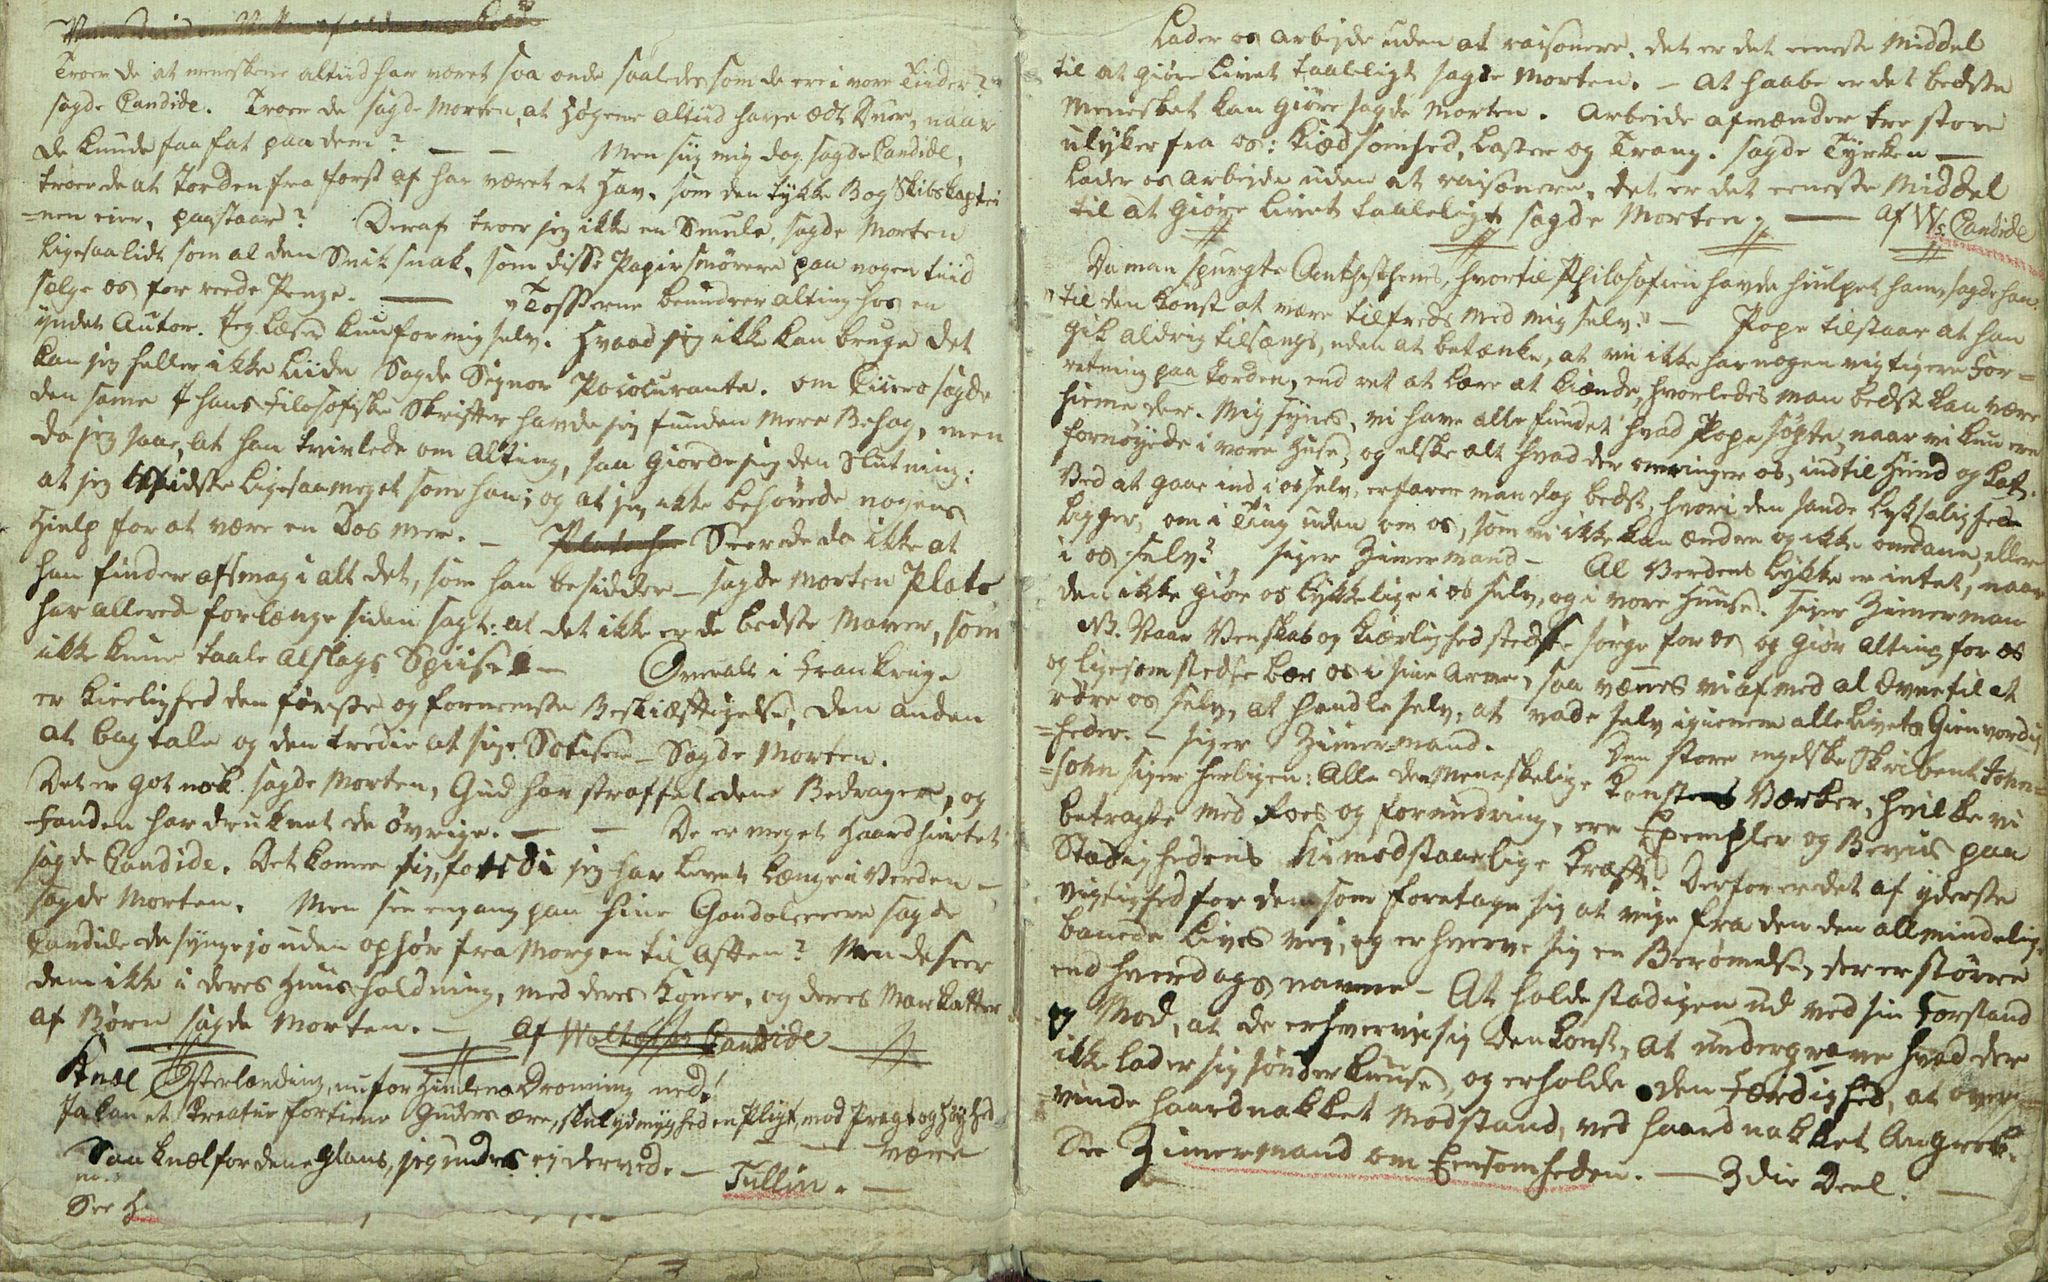 Troer De at meneskene altiid har været saa onde saaledes som de ere i vore Tiider?
sagde Candide. Troer de sagde Morten, at Høgene altiid have ædt Duer, naar
de kunde faa fat paa dem? — — Men siig mig dog sagde Candide,
troer de at Jorden fra først af har været et Hav, som den tykke Bog Skibskaptei
=nen eier, paastaar? Deraf troer jeg ikke en Smule, sagde Morten
ligesaalidt som al den Sniksnak, som disse Papirsmørere paa nogen tiid
sælge os for reede Penge. — "Tosserne beundrer alting hos en
yndet Autor. Jeg læser kun for mig selv. Hvad jeg ikke kan bruge det
kan jeg heller ikke liide Sagde Signor Pococurante. om Cicero sagde
den samme I hans filosofiske Skrifter havde jeg funden mere Behag, men
da jeg saae, at han tvivlede om Alting, saa giorde jeg den Slutning:
at jeg vidste ligesaameget som han; og at jeg ikke behøvede nogens
Hielp for at være en Dosmer. — Plato har Seer de da ikke at
han finder afsmag i alt det, som han besidder — sagde Morten Plato
har allered for længe siden sagt: at det ikke er de bedste Maver, som
ikke kune taale alslags Spiise — Overalt i Frankrige
er kierlighed den første og fornemste Beskiæftigelse, den anden
at bagtale og den tredie at sige Sotiser — Sagde Morten.
Det er got nok sagde Morten, Gud har straffet dene Bedrager, og
Fanden har druknet de øvrige. — — De er meget haardhiertet
sagde Candide. Det komer sig, fordi jeg har levet længe i Verden —
sagde Morten. Men see engang paa hine Gondoleerere sagde
Candide de synge jo uden ophør fra Morgen til Aften? Men de seer
dem ikke i deres Huusholdning, med deres Koner, og deres Markatter
af Børn sagde Morten. — Af Woltærs Candide
Knæl Østerlænding, nu for Himlens Droning ned!
Ja kan et Kreatur fortiene Guders ære, skal ydmyghed en Pligt, mod Pragt og Høyhed
være
Saa knæl for dene Glans, jeg undres ej derved. — Tullin. —
See
Lader os arbejde uden at raisonere. det er det eeneste Middel
til at giøre Livet taaleligt sagde Morten. — At haabe er det bedste
Mennesket kan giøre sagde Morten. Arbeide afvænder tre store
ulyker fra os: Kiedsomhed, Laster og Trang. sagde Tyrken —
Lader os arbejde uden at raisonere, det er det eeneste Middel
til at giøre Livet taaleligt sagde Morten. — Af Ws. Candide
Da man spurgte Anthisthenes, hvortil Philosofien havde hiulpet ham, sagde han
"til den Konst at være tilfreds med mig selv." — Pope tilstaar at han
gik aldrig tilsængs, uden at betænke, at vi ikke har nogen vigtigere For=
retning paa Jorden, end ret at lære at kiende, hvorledes man bedst kan være
hieme der. Mig synes, vi have alle fundet hvad Pope søgte, naar vi kun ere
fornøyede i vore Huse, og elske alt hvad der omringer os, indtil Hund og Kat.
Ved at gaae ind i os selv, erfarer man dog bedst, hvori den sande Lyksalighed
ligger, om i Ting uden om os, som vi ikke kan ændre og ikke omdane, eller
i os selv? siger Zimermand — Al Verdens Lykke er intet, naar
den ikke giør os lykkelige i os selv, og i vore Huuse. siger Zimerman
NB. Naar Venskab og Kierlighed stedse sørge for os og giør alting for os
og ligesom stedse bær os i sine Arme, saa vænnes vi af med al Evne til at
røre os selv, at handle selv, at vade selv igienem alle Livets Gienvordig
=heder. — siger Zimermand. Den store engelske Skribent John=
=sohn siger herligen: Alle den Menneskelige Konstens Værker, hvilke vi
betragte med Roes og forundring, ere Exempler og Beviis paa
Stadighedens uimodstaaelige Kraft. Derfor er det af yderste
vigtighed for dem som foretage sig at vige fra den den allmindelig
banede Lives vej, og erhverve sig en Berømelse, der er større
end hverdags navne — At holde stadigen ud ved sin Forstand
og Mod, at de erhverve sig den Konst, at undergrave hvad der
ikke lader sig sønderknuse, og erholde den Færdighed, at over=
=vinde haardnakket Modstand, ved haardnakket Angreb.
See Zimermand om Eensomheden. — 3die Deel. —